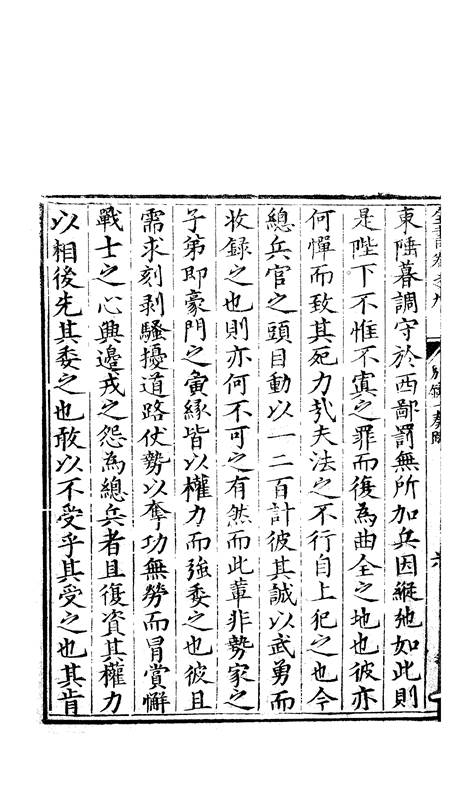 全書卷之九 別錄一 奏疏
東陲暮調守於西鄙罰無所加兵因縱弛如此則
是陛下不惟不寘之罪而復為曲全之地也彼亦
何憚而致其死力㢤夫法之不行自上犯之也今
總兵官之頭目動以一二百計彼其誠以武勇而
收錄之也則亦何不可之有然而此輩非勢家之
子弟即豪門之夤緣皆以權力而強委之也彼且
需求刻剥騷擾道路仗勢以奪功無勞而冒賞懈
戰士之心興邊戎之怨為總兵者且復資其權力
以相後先其委之也敢以不受乎其受之也其肯